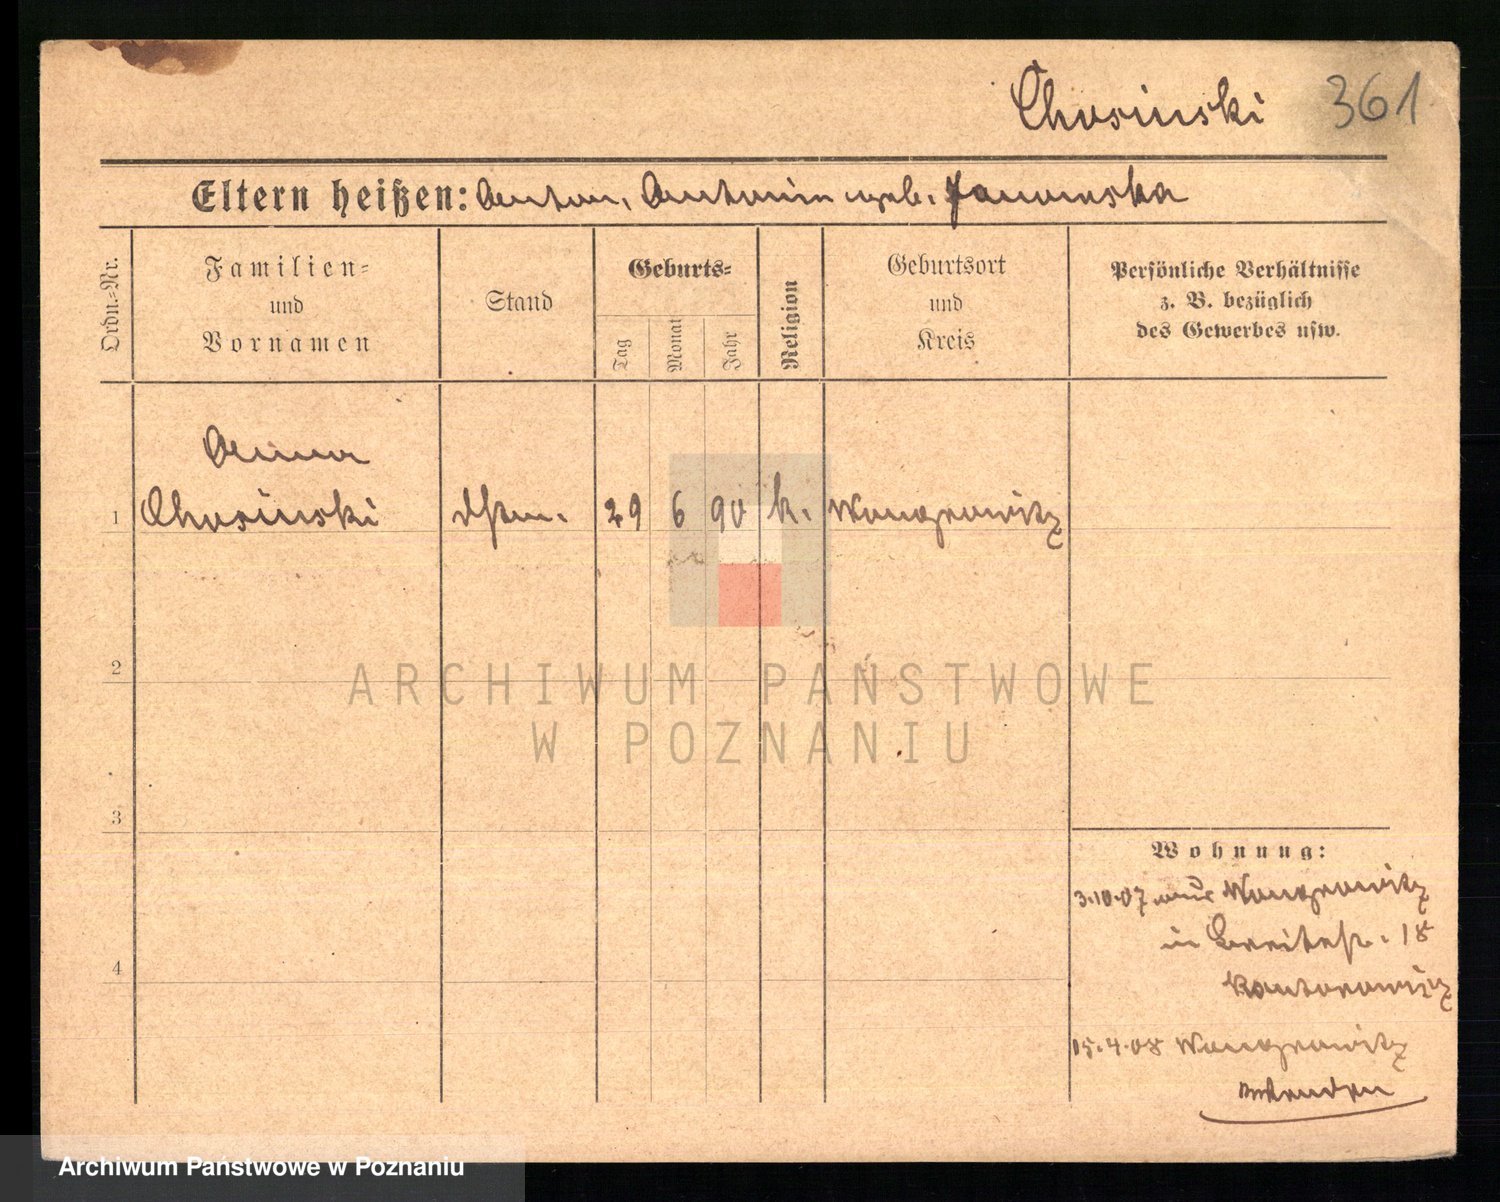 Chosinski 361
Eltern heißen: Anton, Antonin geb. Janowska
Ordn.=Nr.
Familien=
und
Vornamen
Stand
Geburts=
Tag
Monat
Jahr
Religion
Geburtsort
und
Kreis
Persönliche Verhältnisse
z. B. bezüglich
des Gewerbes usw.
Anna
1 Chosinski 29 6 90 k. Wongrowitz
2
3
4
Wohnung:
3.10.07 aus Wongrowitz
in Breitestr. 18
Kantorowicz
15.4.08 Wongrowitz
ARCHIWUM PAŃSTWOWE
W POZNANIU
Archiwum Państwowe w Poznaniu